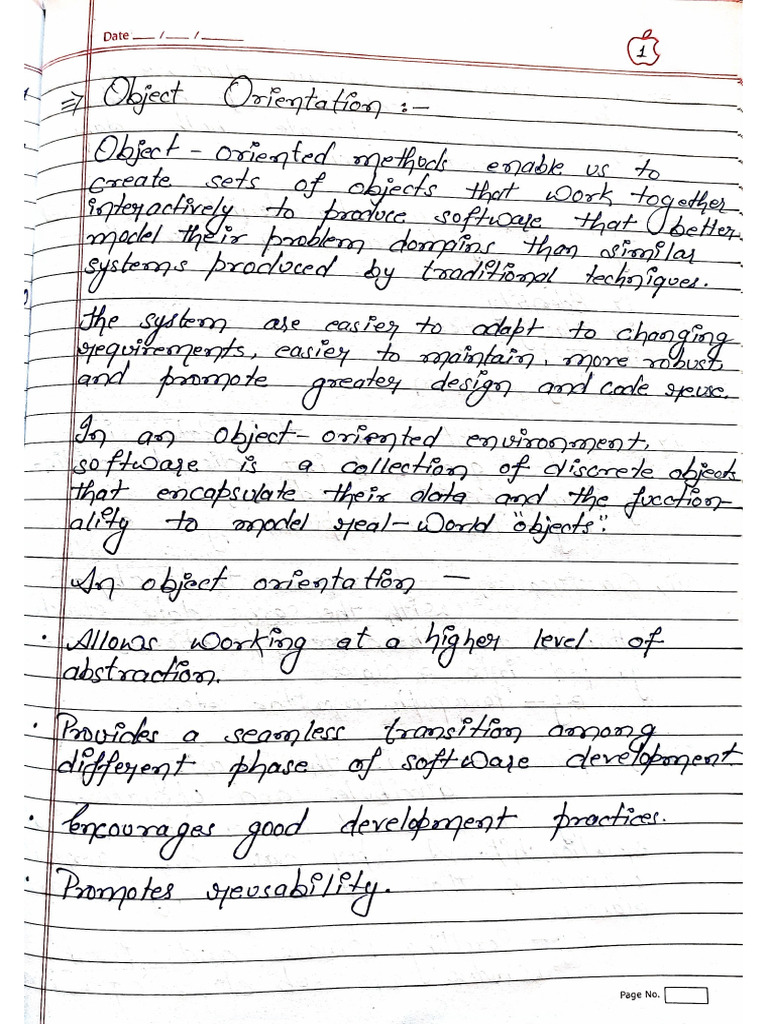 Date __/__/____
1
⇒ Object Orientation :-
Object-oriented methods enable us to
create sets of objects that work together
interactively to produce software that better
model their problem domains than similar
systems produced by traditional techniques.
The system are easier to adapt to changing
requirements, easier to maintain, more robust,
and promote greater design and code reuse.
In an object-oriented environment,
software is a collection of discrete objects
that encapsulate their data and the fucction-
ality to model real-world "objects".
An object orientation —
• Allows working at a higher level of
abstraction.
• Provides a seamless transition among
different phase of software development
• Encourages good development practices.
• Promotes reusability.
Page No.